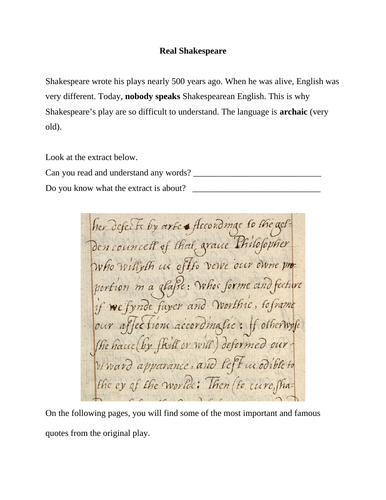 Real Shakespeare
Shakespeare wrote his plays nearly 500 years ago. When he was alive, English was
very different. Today, nobody speaks Shakespearean English. This is why
Shakespeare’s play are so difficult to understand. The language is archaic (very
old).
Look at the extract below.
Can you read and understand any words? ____________________________
Do you know what the extract is about? ____________________________
her defects by arte Accordinge to the gol-
den councell of that graue Philosopher
who willyth us ofte vewe our owne pro-
portion in a glasse: whose forme and fecture
if we fynde fayer and worthie, to frame
our affection accordinglie: if otherwyse
she haue (by skill or will) deformed our
ward apparance, and left us odible to
the ey of the worlde: Then (to cure, sha-
On the following pages, you will find some of the most important and famous
quotes from the original play.